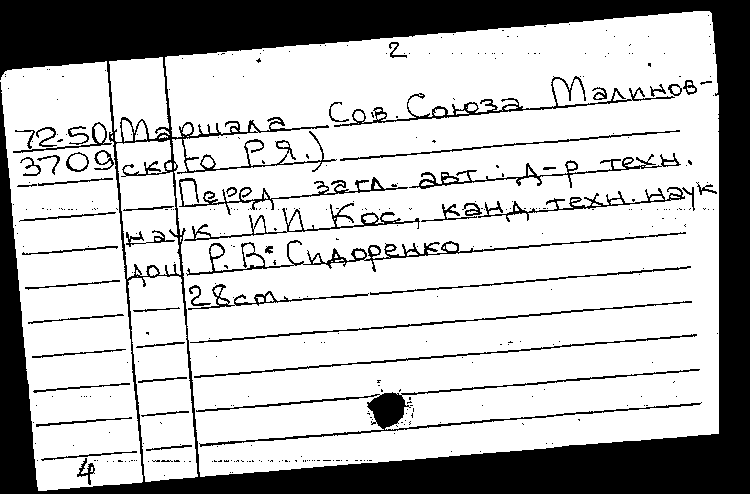 2
72-50 Маршала Сов. Союза Малинов-
3709 ского Р.Я.)
Перед загл. авт.: д-р техн.
наук И.И. Кос, канд. техн. наук
доц. Р.В. Сидоренко.
28 cm.
4